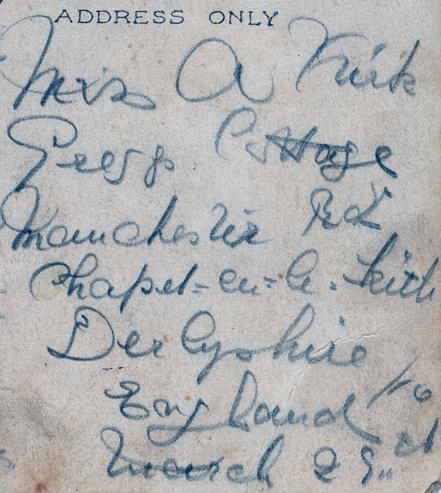 ADDRESS ONLY
Miss A Kirk
Gregg Cottage
Manchester Rd
Chapel-en-le-Frith
Derbyshire
England
March 29